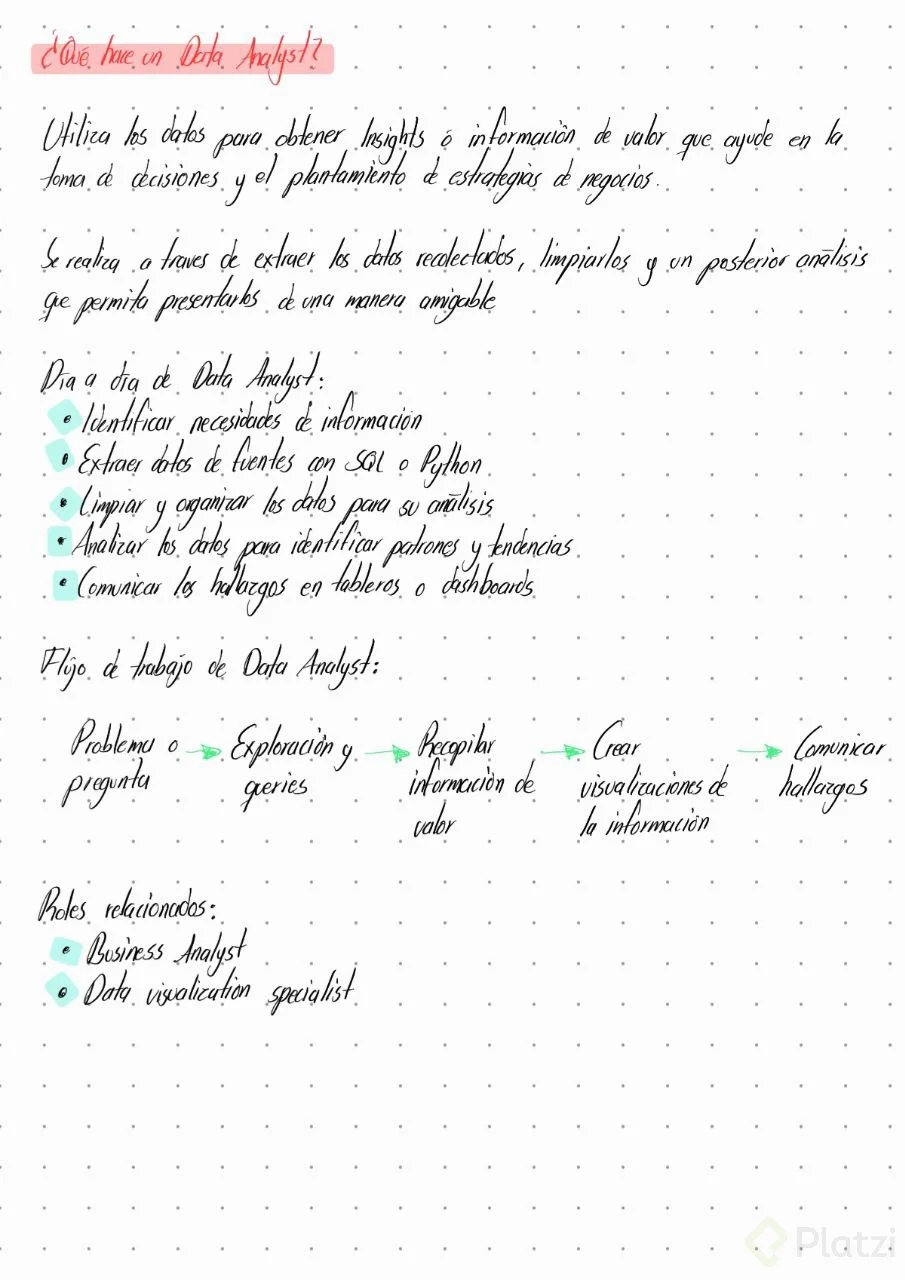 ¿Qué hace un Data Analyst?
Utiliza los datos para obtener Insights o información de valor que ayude en la
toma de decisiones y el plantamiento de estrategias de negocios.
Se realiza a traves de extraer los datos recolectados, limpiarlos y un posterior análisis
que permita presentarlos de una manera amigable
Día a día de Data Analyst:
• Identificar necesidades de información
• Extraer datos de fuentes con SQL o Python
• Limpiar y organizar los datos para su análisis
• Analizar los datos para identificar patrones y tendencias
• Comunicar los hallazgos en tableros o dashboards
Flujo de trabajo de Data Analyst:
Problema o → Exploración y → Recopilar → Crear → Comunicar
pregunta queries información de visualizaciones de hallazgos
valor la información
Roles relacionados:
• Business Analyst
• Data visualization specialist
Platzi